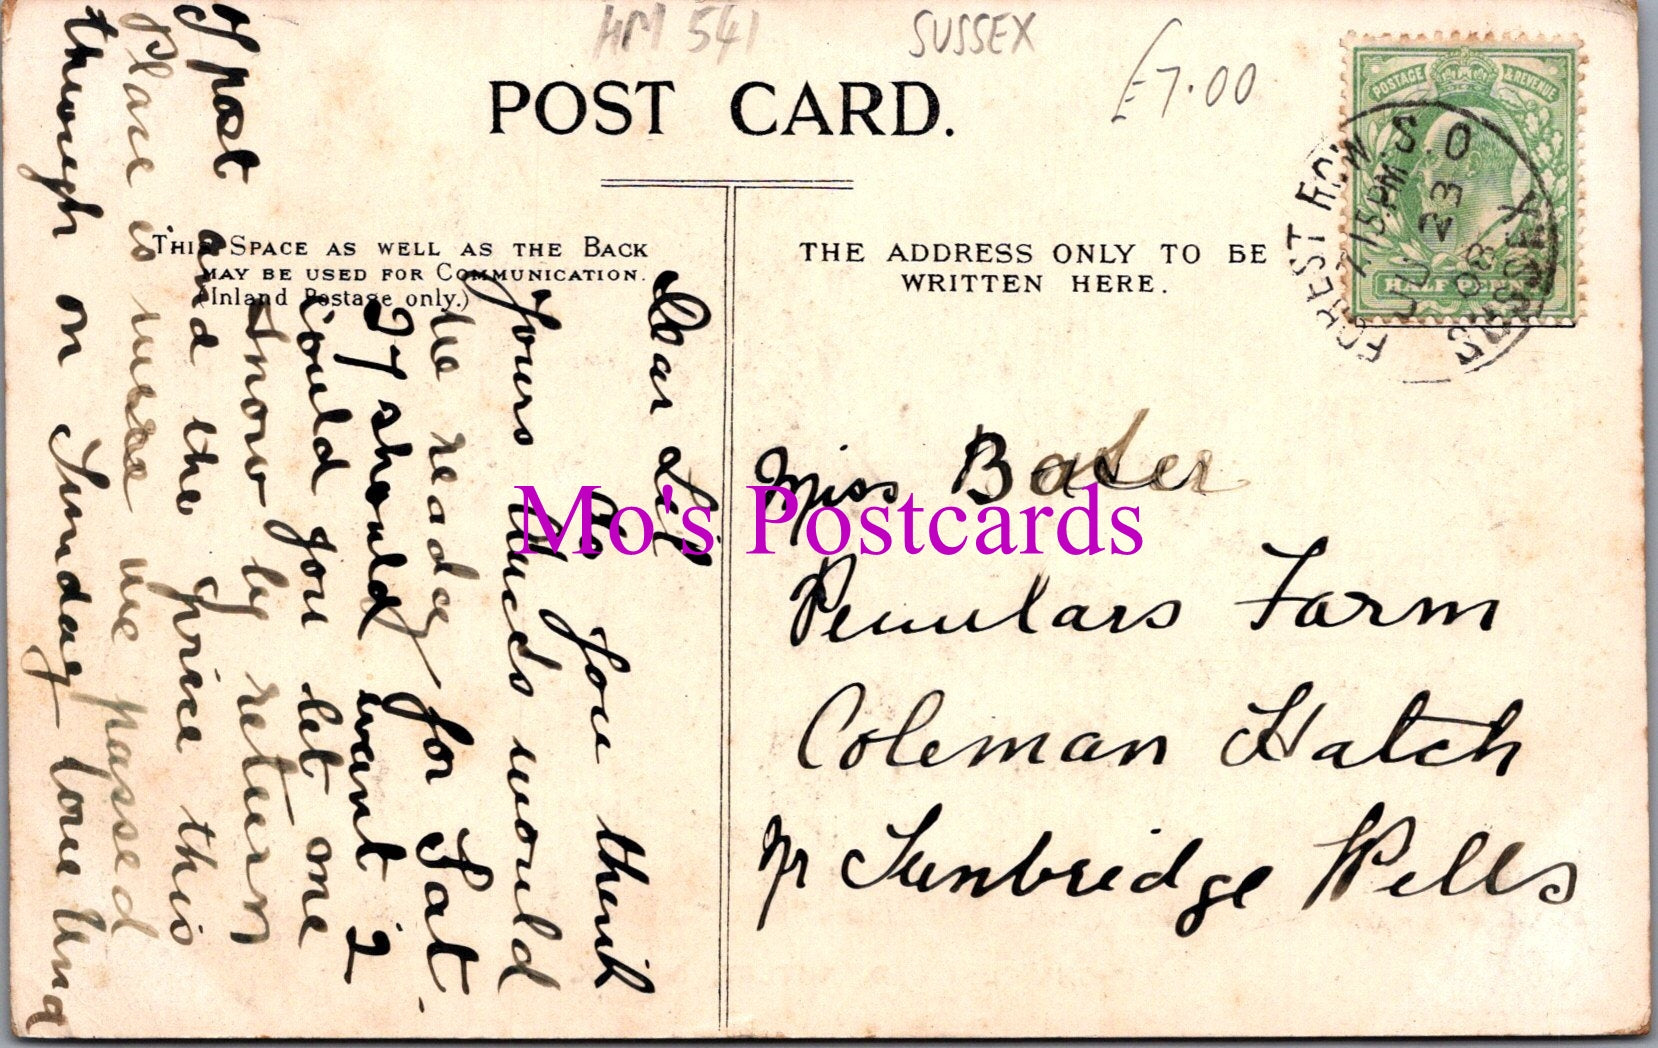 HM 541
SUSSEX
£7.00
POST CARD.
POSTAGE & REVENUE
HALF PENNY
FOREST ROW S.O
SUSSEX
7.15PM
JU 23
08
THIS SPACE AS WELL AS THE BACK
MAY BE USED FOR COMMUNICATION.
(Inland Postage only.)
THE ADDRESS ONLY TO BE
WRITTEN HERE.
Dear Lil
Do you think
yours Ducks would
be ready for Sat.
If I should want 2
could you let me
know by return
of post and the price this
Place is were we passed
through on Sunday love
Miss Baker
Farm
Coleman Hatch
Nr Tunbridge Wells
Mo's Postcards